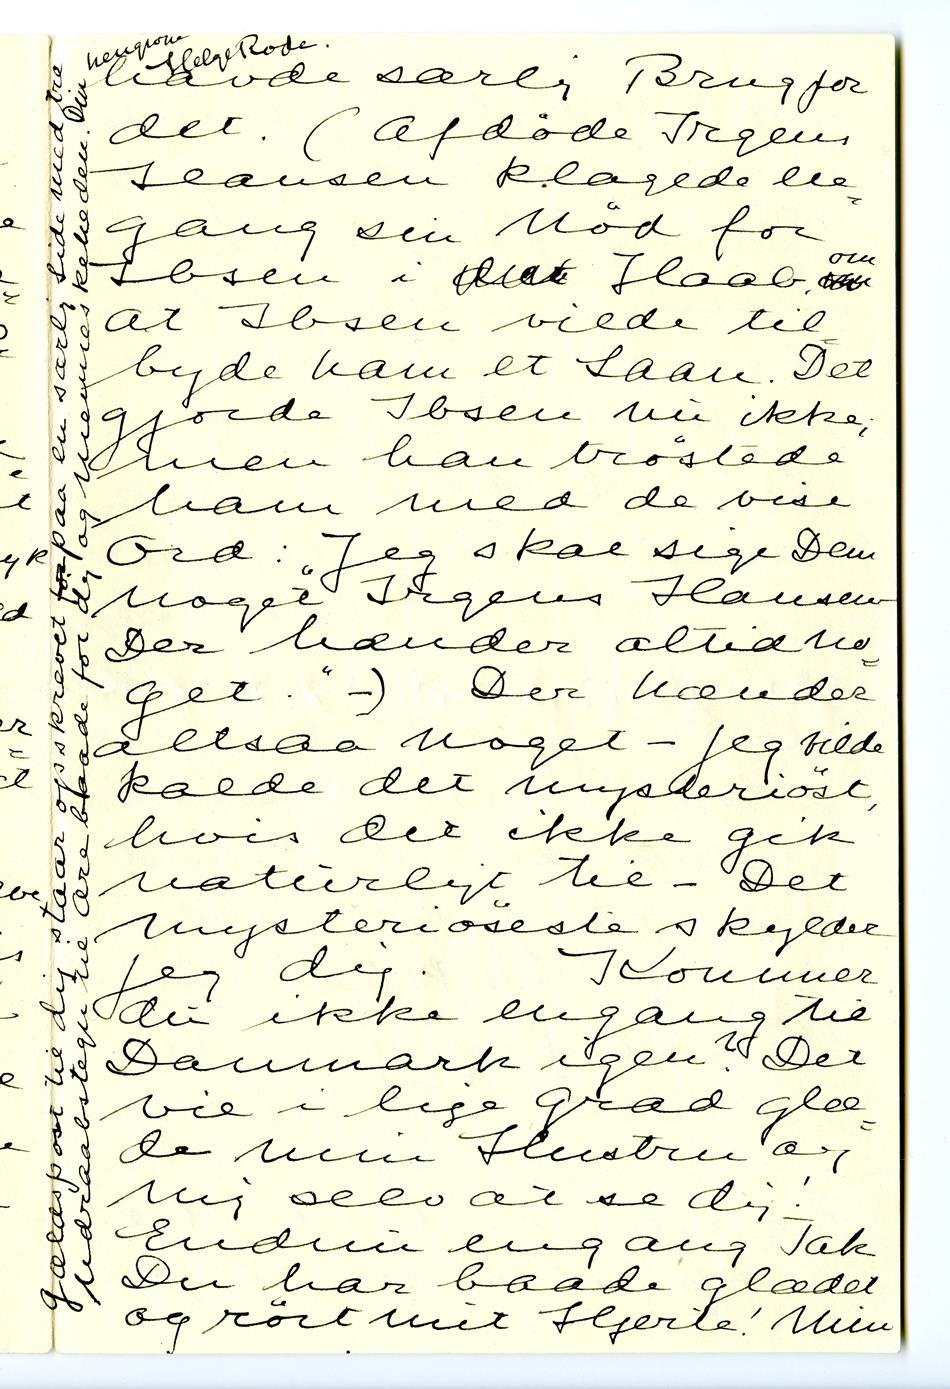 havde særlig Brug for
det. ( Afdöde Irgens
Hansen klagede en-
gang sin Nöd for
Ibsen i Haab om
at Ibsen vilde til-
byde ham et Laan. Det
gjorde Ibsen nu ikke,
men han tröstede
ham med de vise
Ord: "Jeg skal sige Dem
noget Irgens Hansen
Der hænder altid no-
get." -) Der hænder
altsaa noget - jeg vilde
kalde det mysteriöst,
hvis det ikke gik
naturligt til - Det
mysteriöseste skylder
jeg dig. Kommer
du ikke engang til
Danmark igen? Det
vil i lige Grad glæ-
de min Hustru og
mig selv at se dig!
Endnu engang Tak
Du har baade glædet
og rört mit Hjerte! Min
Gældspost til dig staar opskrevet paa en særlig Side med tre
Udraabstegn til Ære baade for dig og Menneskeheden. Din
hengivne
Helge Rode.